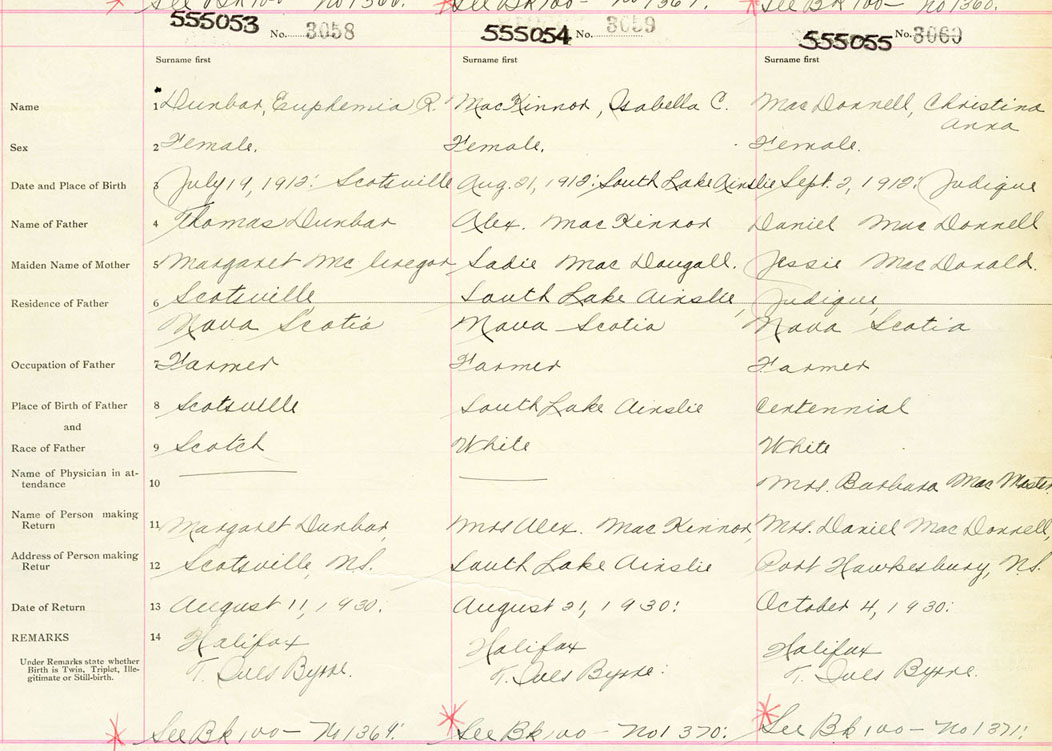 See Bk 100 - No 1360.
555053 No. 3058
555054 No. 3059
555055 No. 3060
Surname first Surname first Surname first
Name 1 Dunbar, Euphemia R. MacKinnon, Isabella C. MacDonnell, Christina
Anna
Sex 2 Female. Female. Female.
Date and Place of Birth 3 July 19, 1912. Scotsville Aug. 21, 1912. South Lake Ainslie Sept. 2, 1912. Judique
Name of Father 4 Thomas Dunbar Alex. MacKinnon Daniel MacDonnell
Maiden Name of Mother 5 Margaret McGregor Sadie MacDougall. Jessie MacDonald.
Residence of Father 6 Scotsville, South Lake Ainslie, Judique,
Nova Scotia Nova Scotia Nova Scotia
Occupation of Father 7 Farmer Farmer Farmer
Place of Birth of Father 8 Scotsville South Lake Ainslie Centennial
and
Race of Father 9 Scotch White White
Name of Physician in at-
tendance 10 Mrs. Barbara MacMaster
Name of Person making
Return 11 Margaret Dunbar, Mrs Alex. MacKinnon, Mrs. Daniel MacDonnell,
Address of Person making
Retur 12 Scotsville, N.S. South Lake Ainslie Port Hawkesbury, N.S.
Date of Return 13 August 11, 1930. August 21, 1930. October 4, 1930.
REMARKS 14 Halifax Halifax Halifax
Under Remarks state whether
Birth is Twin, Triplet, Ille-
gitimate or Still-birth.
T. Ives Byrne. T. Ives Byrne. T. Ives Byrne.
See Bk 100 - No 1369. See Bk 100 - No 1370. See Bk 100 - No 1371.